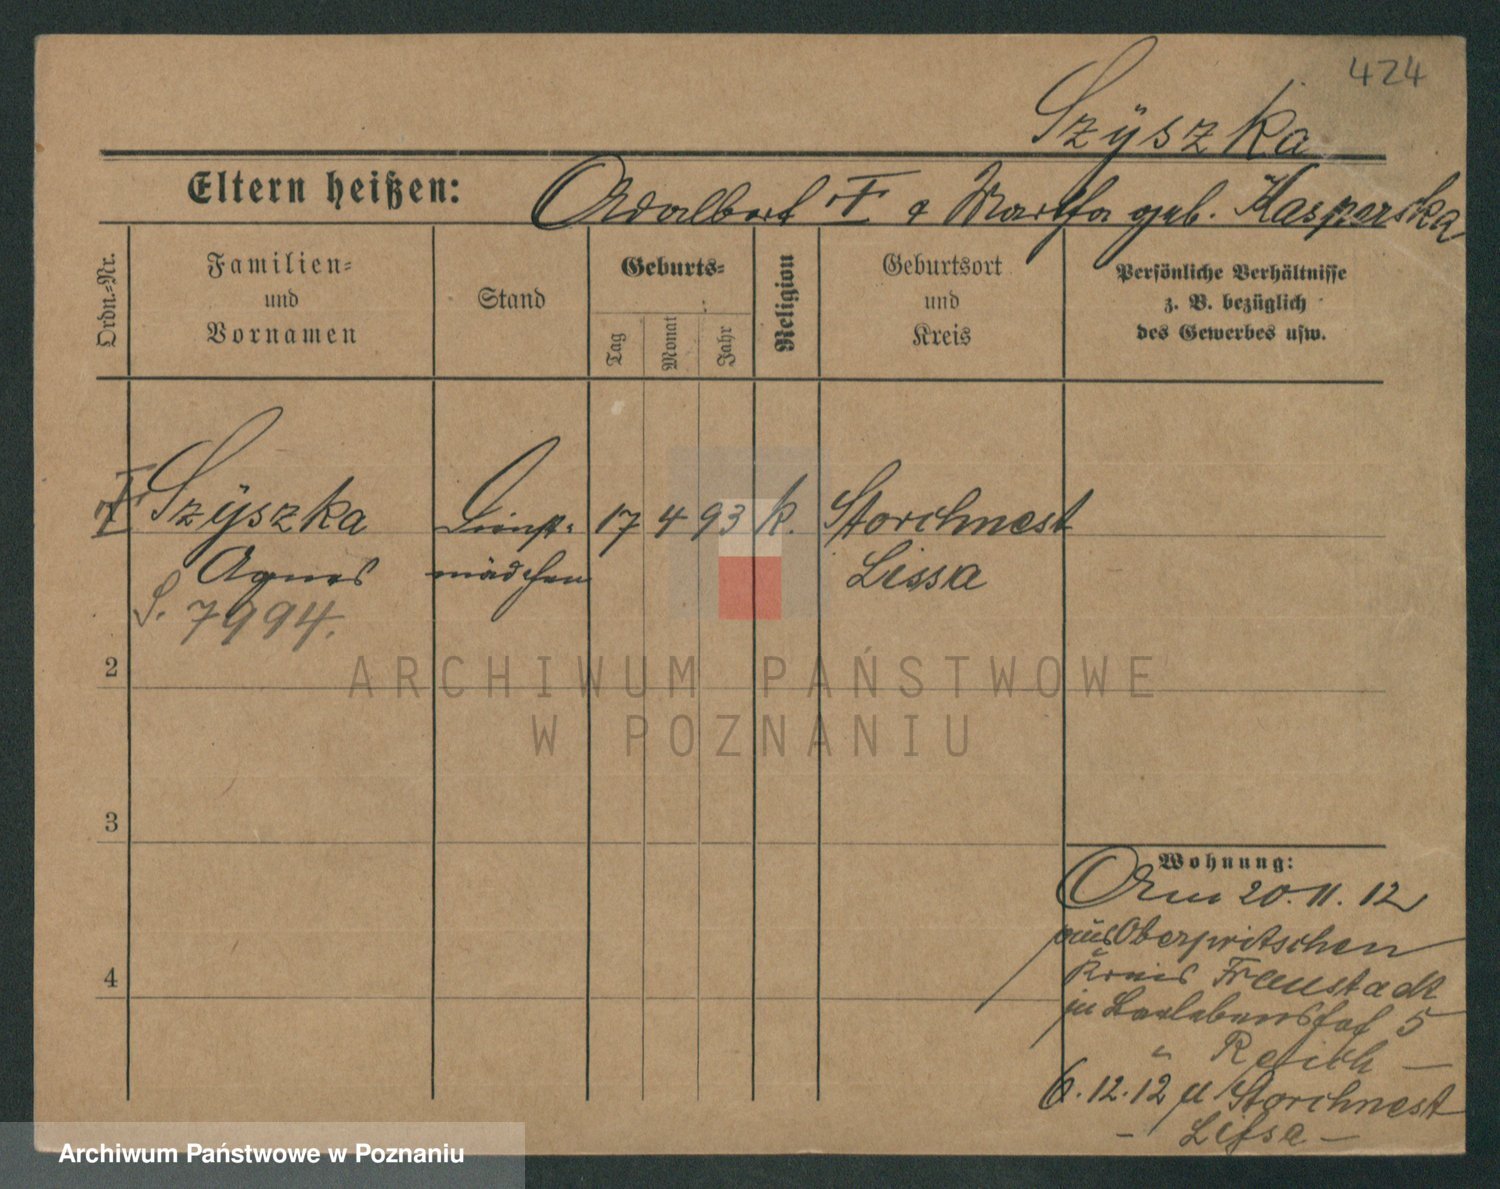 424
Szÿszka
Eltern heißen: Adalbert & Martha geb. Kasperska
Ordn.-Nr.
Familien-
und
Vornamen
Stand
Geburts-
Tag
Monat
Jahr
Religion
Geburtsort
und
Kreis
Persönliche Verhältnisse
z. B. bezüglich
des Gewerbes usw.
Szÿszka Dienst- 17 4 93 k. Storchnest
Agnes mädchen Lissa
S. 7994.
2
ARCHIWUM PAŃSTWOWE
W POZNANIU
3
Wohnung:
Am 20. 11. 12
aus Oberpritschen
4
Kreis Fraustadt
zu 5
" Reich —
6. 12. 12 n Storchnest
— Lissa —
Archiwum Państwowe w Poznaniu